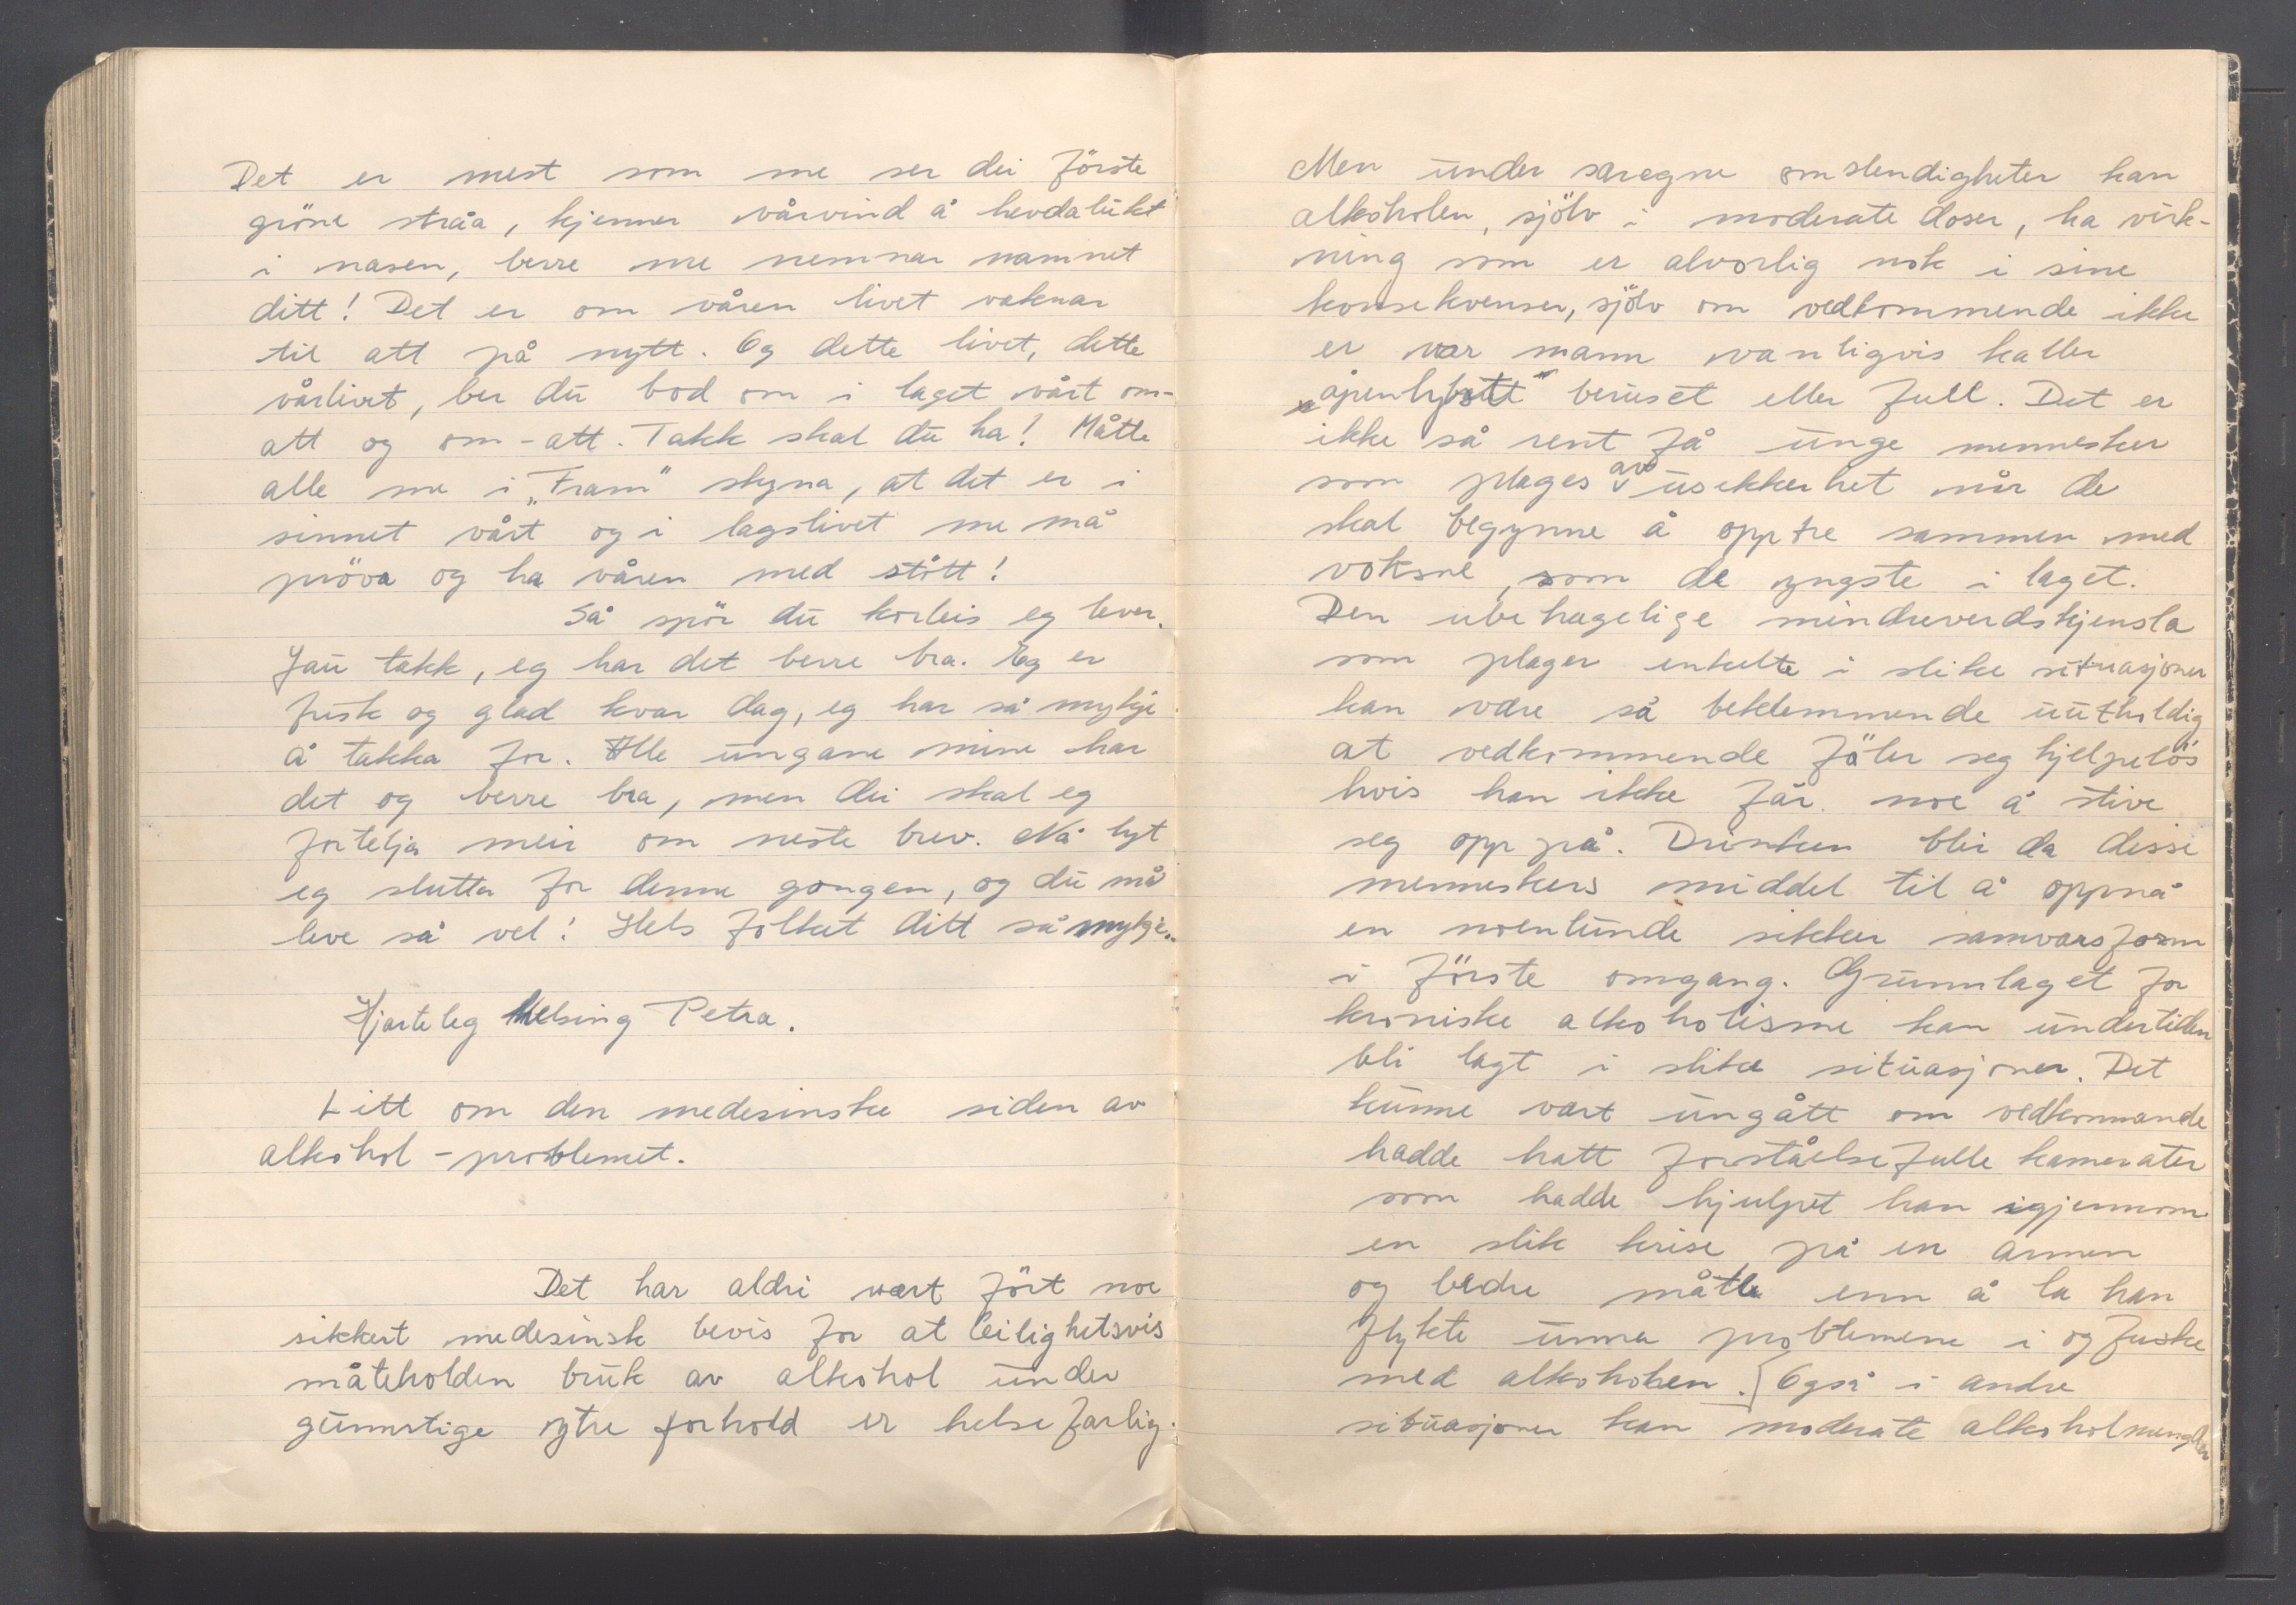 Det er mest som me ser dei förste
gröne stråa, kjenner vårvind å hevdalukt
i nasen, berre me nemnar namnet
ditt! Det er om våren livet vaknar
til att på nytt. Og dette livet, dette
vårlivet, ber du bod om i laget vårt om-
att og om-att. Takk skal du ha! Måtte
alle me i „Fram" skyna, at det er i
sinnet vårt og i lagslivet me må
pröva og ha våren med stött!
Så spör du korleis eg lever.
Jau takk, eg har det berre bra. Eg er
frisk og glad kvar dag, eg har så mykje
å takka for. Alle ungane mine har
det og berre bra, men dei skal eg
fortelja meir om neste brev. Nå lyt
eg slutta for denne gongen, og du må
leve så vel! Hels folket ditt så mykje..
Hjarteleg helsing Petra.
Litt om den medesinske siden av
alkohol-problemet.
Det har aldri vært fört noe
sikkert medesinsk bevis for at leilighetsvis
måteholden bruk av alkohol under
gunnstige ytre forhold er helsefarlig.
Men under særegne omstendigheter kan
alkoholen, sjölv i moderate doser, ha virk-
ning som er alvorlig nok i sine
konsekvenser, sjölv om vedkommende ikke
er vær mann vanligvis kaller
„åpenlyst" beruset eller full. Det er
ikke så rent få unge mennesker
som plages av usikkerhet når de
skal begynne å opptre sammen med
voksne, som de yngste i laget.
Den ubehagelige mindreverdskjensla
som plager enkelte i slike situasjoner
kan være så beklemmende uutholdig
at vedkommende föler seg hjelpelös
hvis han ikke får noe å stive
seg opp på. Drinken blir da disse
menneskers middel til å oppnå
en noenlunde sikker samværsform
i förste omgang. Grunnlaget for
kroniske alkoholisme kan undertiden
bli lagt i slike situasjoner. Det
kunne vært ungått om vedkommande
hadde hatt forståelsefulle kamerater
som hadde hjulpet han igjennom
en slik krise på en annen
og bedre måtte enn å la han
flykte unna problemene i og fuske
med alkoholen. [Også i andre
situasjoner kan moderate alkoholmengder